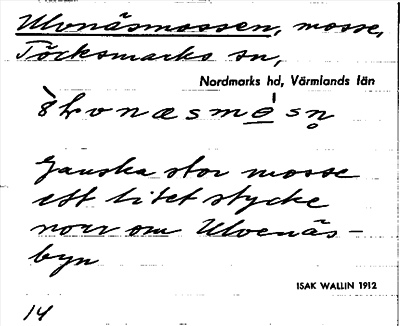 Ulvonäsmossen, mosse,
Töcksmarks sn,
Nordmarks hd, Värmlands län
Ganska stor mosse
ett litet stycke
norr om Ulvenäs-
byn
ISAK WALLIN 1912
14